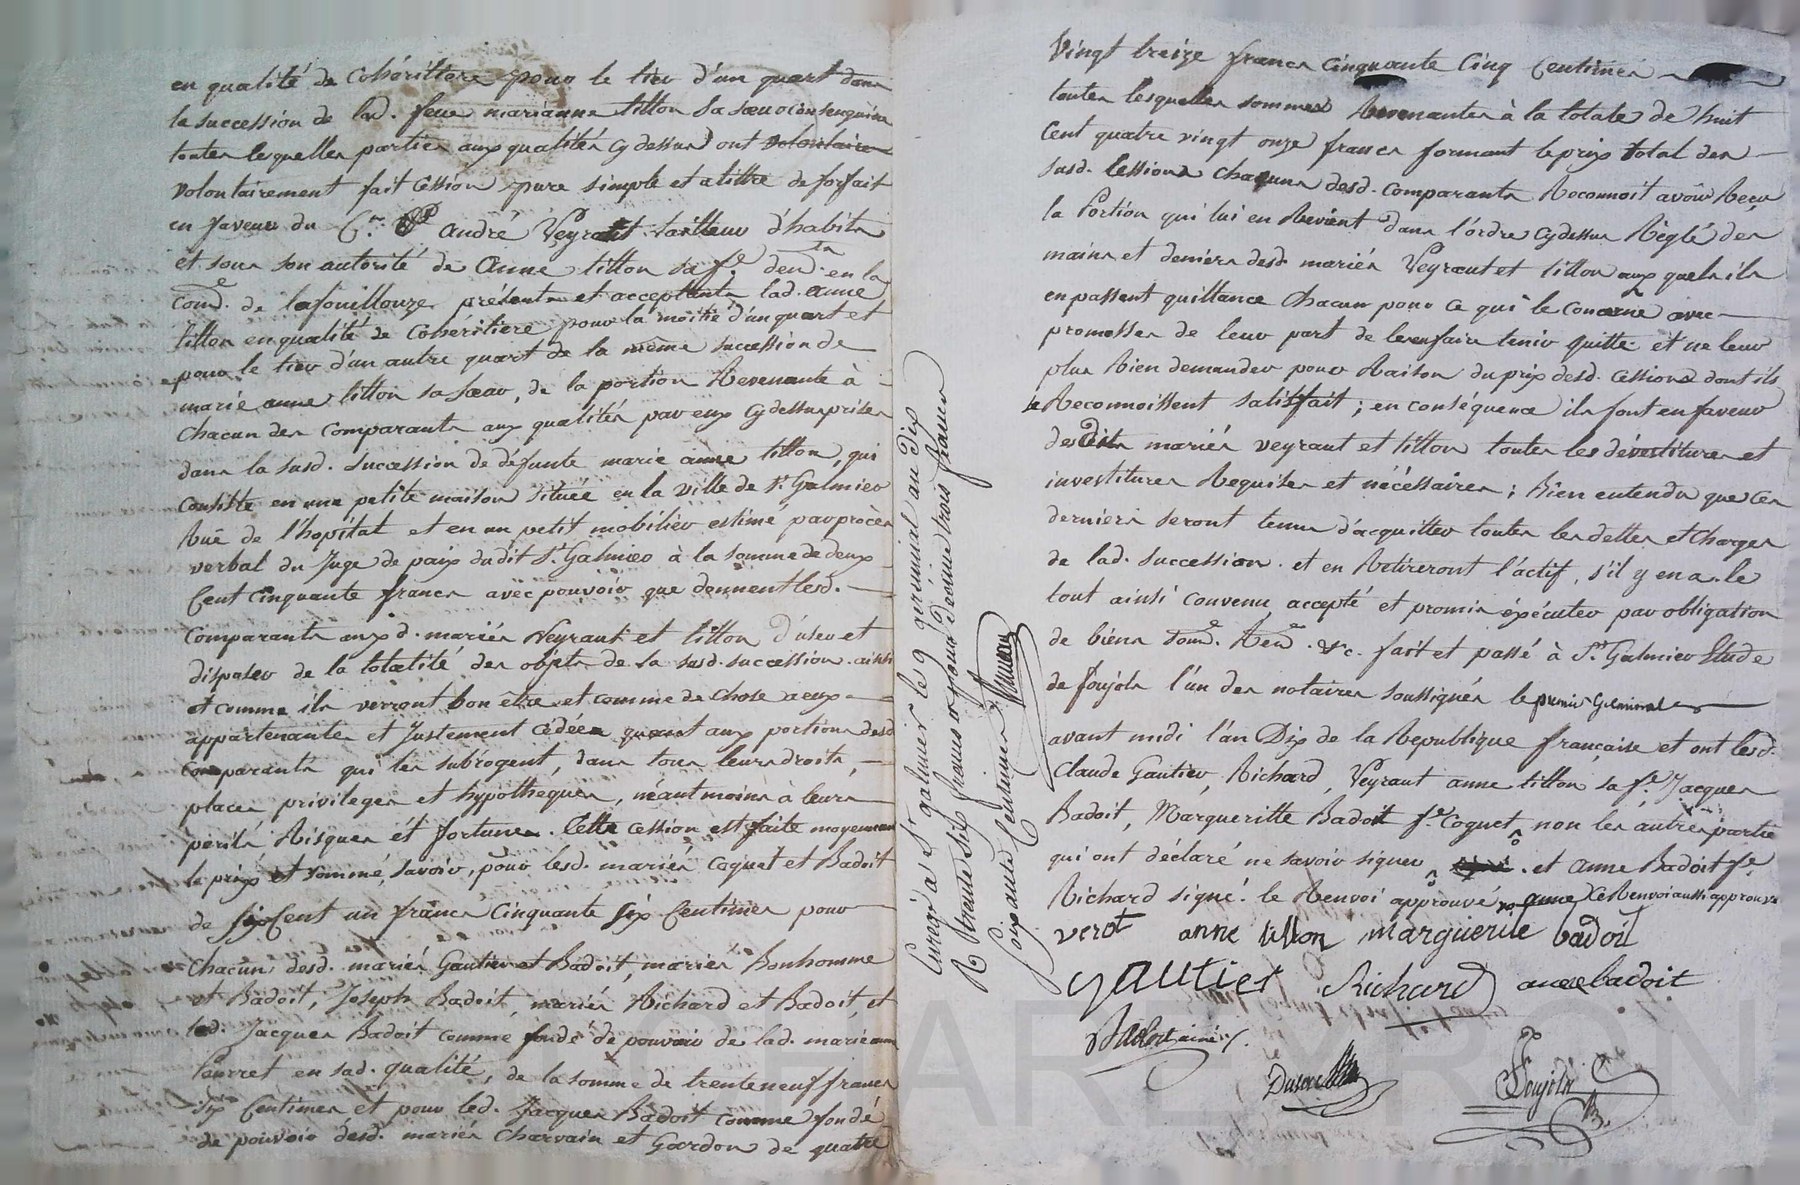 en qualité de Cohérittere pour le tier d'un quart dans
la succession de lad. feue marianne titton sa sœur consenguine
touter lesqueller partier aux qualités cy dessus ont volontairem
volontairement fait Cession pure simple et atittre de forfait
en faveur du Cn. André Veyraut tailleur d'habits
et sous son autorité de Anne titton sa fe. demts. en la
Come. de lafouillouze présents et acceptants lad. anne
titton en qualité de Cohéritiere pour la moitié d'un quart et
pour le tier d'un autre quart de la même succession de
marie anne titton sa Sœur, de la portion Revenante à
chacun des comparants aux qualités par eux cy dessus prises
dans la susd. succession de défunte marie anne titton, qui
consiste en une petite maison située en la ville de St. Galmier
Rüe de l'hopital et en un petit mobilier estimé par procès
verbal du Juge de paix dudit St. Galmier à la somme de deux
Cent Cinquante francs avec pouvoir que donnent lesd.
Comparants auxd. mariés Veyraut et titton d'user et
disposer de la totalité des objets de la susd. succession ainsi
et comme ils verront bon être et comme de chose a eux
appartenante et Justement Cédée quant aux portions desd
comparants qui les subrogent, dans tous leurs droits,
places, privileges et hypotheques, néantmoins à leurs
périls Risques et fortunes. Cette cession est faite moyennant
le prix et somme, savoir, pour lesd. mariés Coquet et Badoit
de six Cent un francs Cinquante six Centimes pour
Chacun desd. mariés Gautier et Badoit, mariés Bonhomme
et Badoit, Joseph Badoit, mariés Richard et Badoit, et
led. Jacques Badoit comme fondé de pouvoir de lad. marie anne
Peurret en sad. qualité, de la somme de trente neuf francs
six Centimes et pour led. Jacques Badoit comme fondé
de pouvoir desd. mariés Charvain et Gordon de quatre
Enregé a St galmier le 9 germinal an dix
R trente six francs et pour decime trois francs
soixante Centimes
Vingt treize francs Cinquante Cinq Centimes
touter lesqueller sommes Revenantes à la totale de huit
Cent quatre vingt onze francs formant le prix total des
susd. Cessions chacuns desd. comparants Reconnoit avoir Reçu
la Portion qui lui en Revient dans l'ordre cy dessus Réglé des
mains et deniers desd. mariés Veyraut et titton aux quels ils
en passent quittance Chacun pour ce qui le concerne avec
promesses de leur part de les en faire tenir quitte et ne leur
plus Rien demander pour Raison du prix desd. cessions dont ils
se Reconnoissent satisfait; en conséquence ils font en faveur
desdits mariés veyraut et titton toutes les dévestitures et
investitures Requises et nécéssaires; Bien entendu que ces
derniers seront tenus d'acquitter toutes les dettes et Charges
de lad. succession. et en Retireront l'actif, s'il y en a. le
tout ainsi convenu accepté et promis éxécuter par obligation
de biens Soume. Rene. &c. fait et passé à St. Galmier Etude
de foujols l'un des notaires soussignés le premier Germinal
avant midi l'an Dix de la République française et ont lesd.
Claude Gautier, Richard, Veyraut anne titton sa fe. Jacques
Badoit, Margueritte Badoit fe. Coquet non les autres partie
qui ont déclaré ne savoir signer. et Anne Badoit fe
Richard signé. le Renvoi approuvé Le Renvoi aussi approuvé
verot anne titton marguerite badoit
gautier Richard anne badoit
Badoit ainé
Foujols